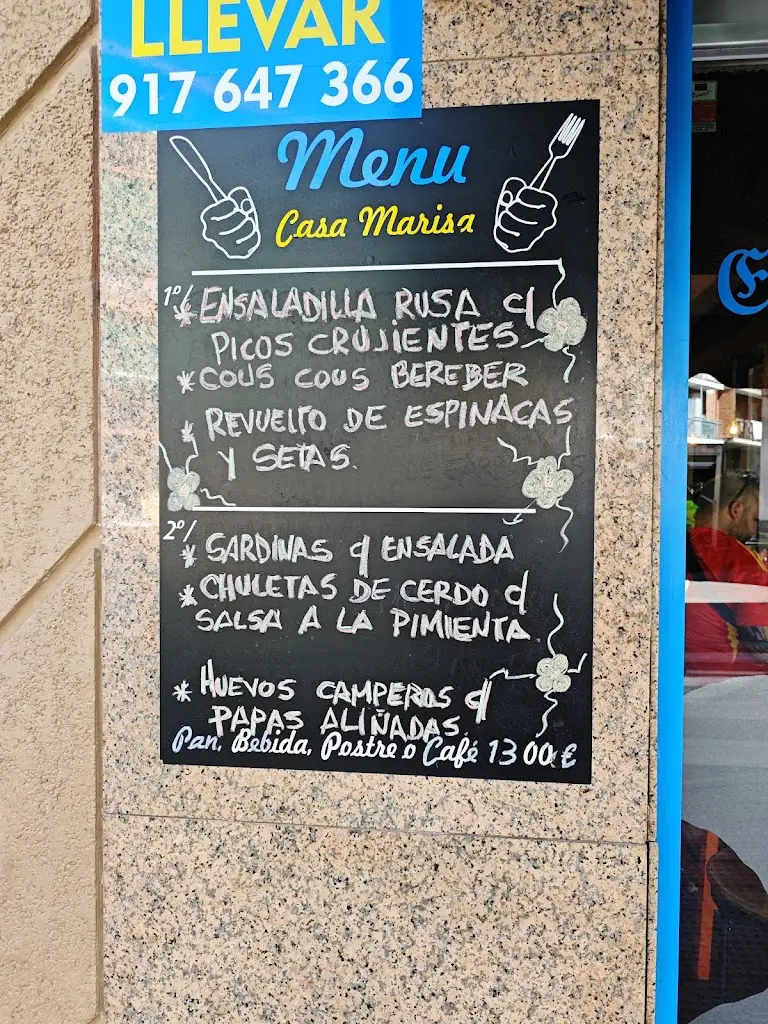 LLEVAR
917 647 366
Menu
Casa Marisa
1º/
* ENSALADILLA RUSA c/
PICOS CRUJIENTES
* COUS COUS BEREBER
* REVUELTO DE ESPINACAS
Y SETAS.
2º/
* SARDINAS c/ ENSALADA
* CHULETAS DE CERDO c/
SALSA A LA PIMIENTA
* HUEVOS CAMPEROS c/
PAPAS ALIÑADAS.
Pan, Bebida, Postre o Café 13 00 €